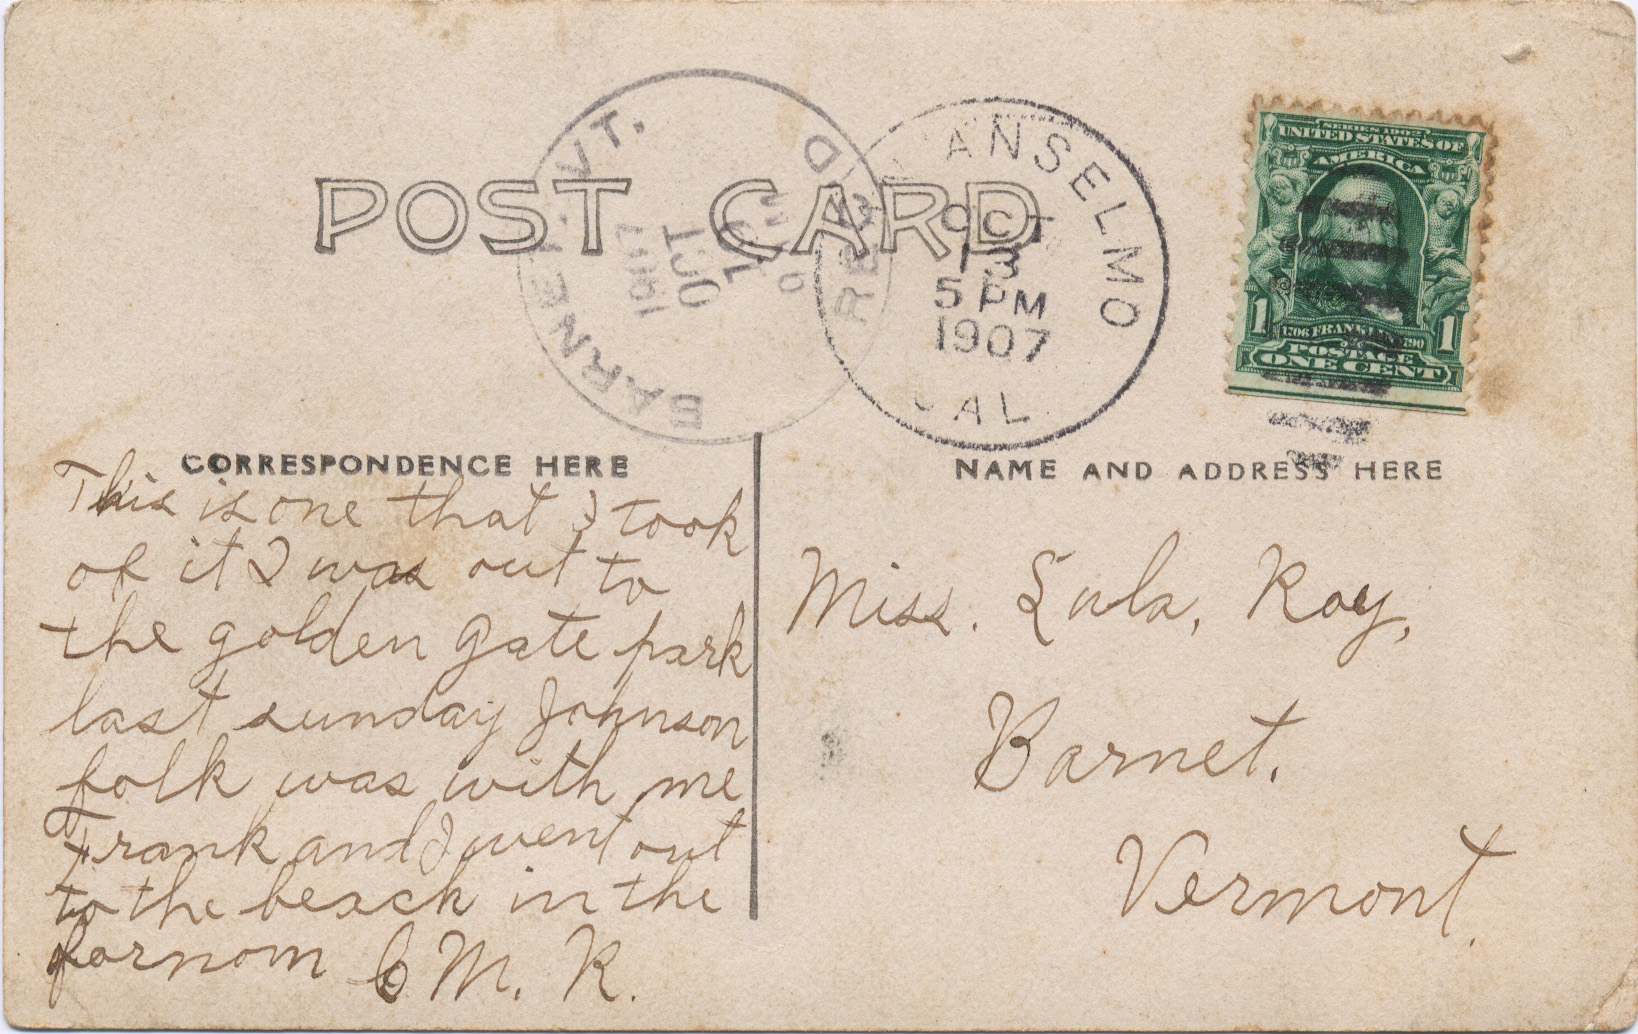 POST CARD
BARNET, VT.
REC'D
OCT
1907
SAN ANSELMO
OCT
13
5 PM
1907
CAL.
SERIES 1902
UNITED STATES OF
AMERICA
1706 FRANKLIN 1790
POSTAGE
1 ONE CENT 1
CORRESPONDENCE HERE
This is one that I took
of it I was out to
the golden gate park
last sunday Johnson
folk was with me
Frank and I went out
to the beach in the
fornom C M. R.
NAME AND ADDRESS HERE
Miss. Lula, Roy,
Barnet.
Vermont.